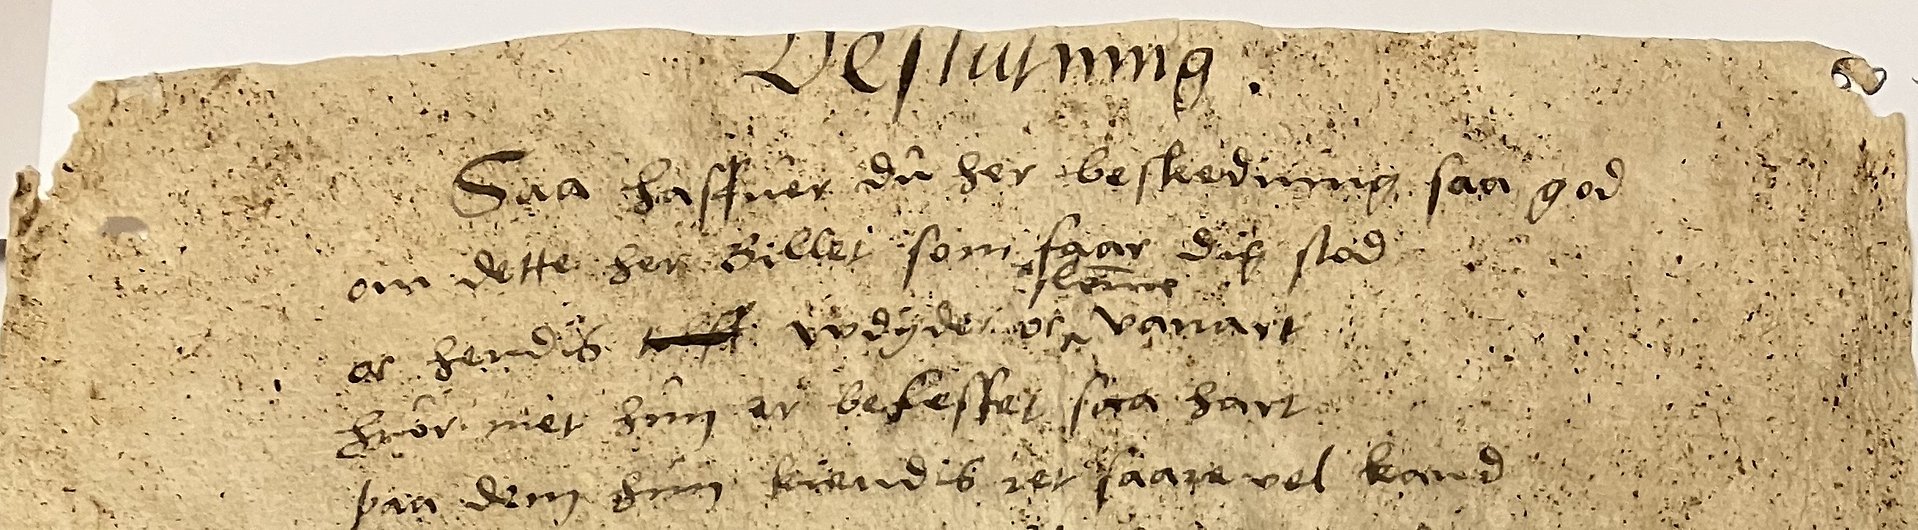 Beslutning.
Saa haffuer du her beskedning saa god
om dette her Billet som faar dig stod
slemme
oc hendis wdyder oc vanart
huor met hun er besesset saa hart
paa dem hun kiendis ret saare vel kand